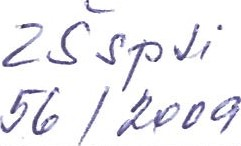 ZŠ spsi
56/2009